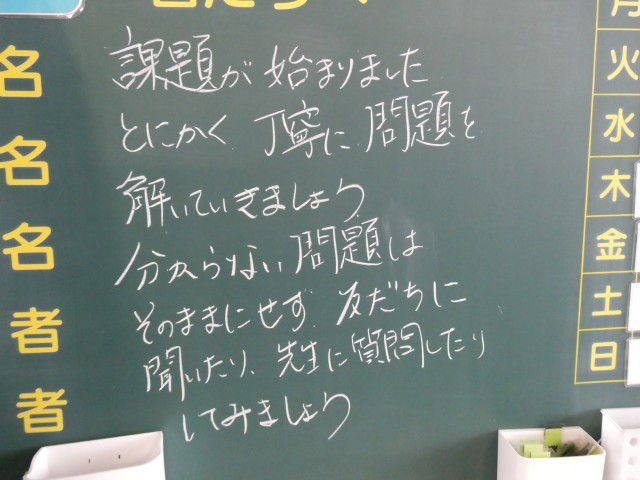 課題が始まりました
とにかく、丁寧に問題を
解いていきましょう
分からない問題は
そのままにせず、友だちに
聞いたり、先生に質問したり
してみましょう
名
名
名
者
者
月
火
水
木
金
土
日